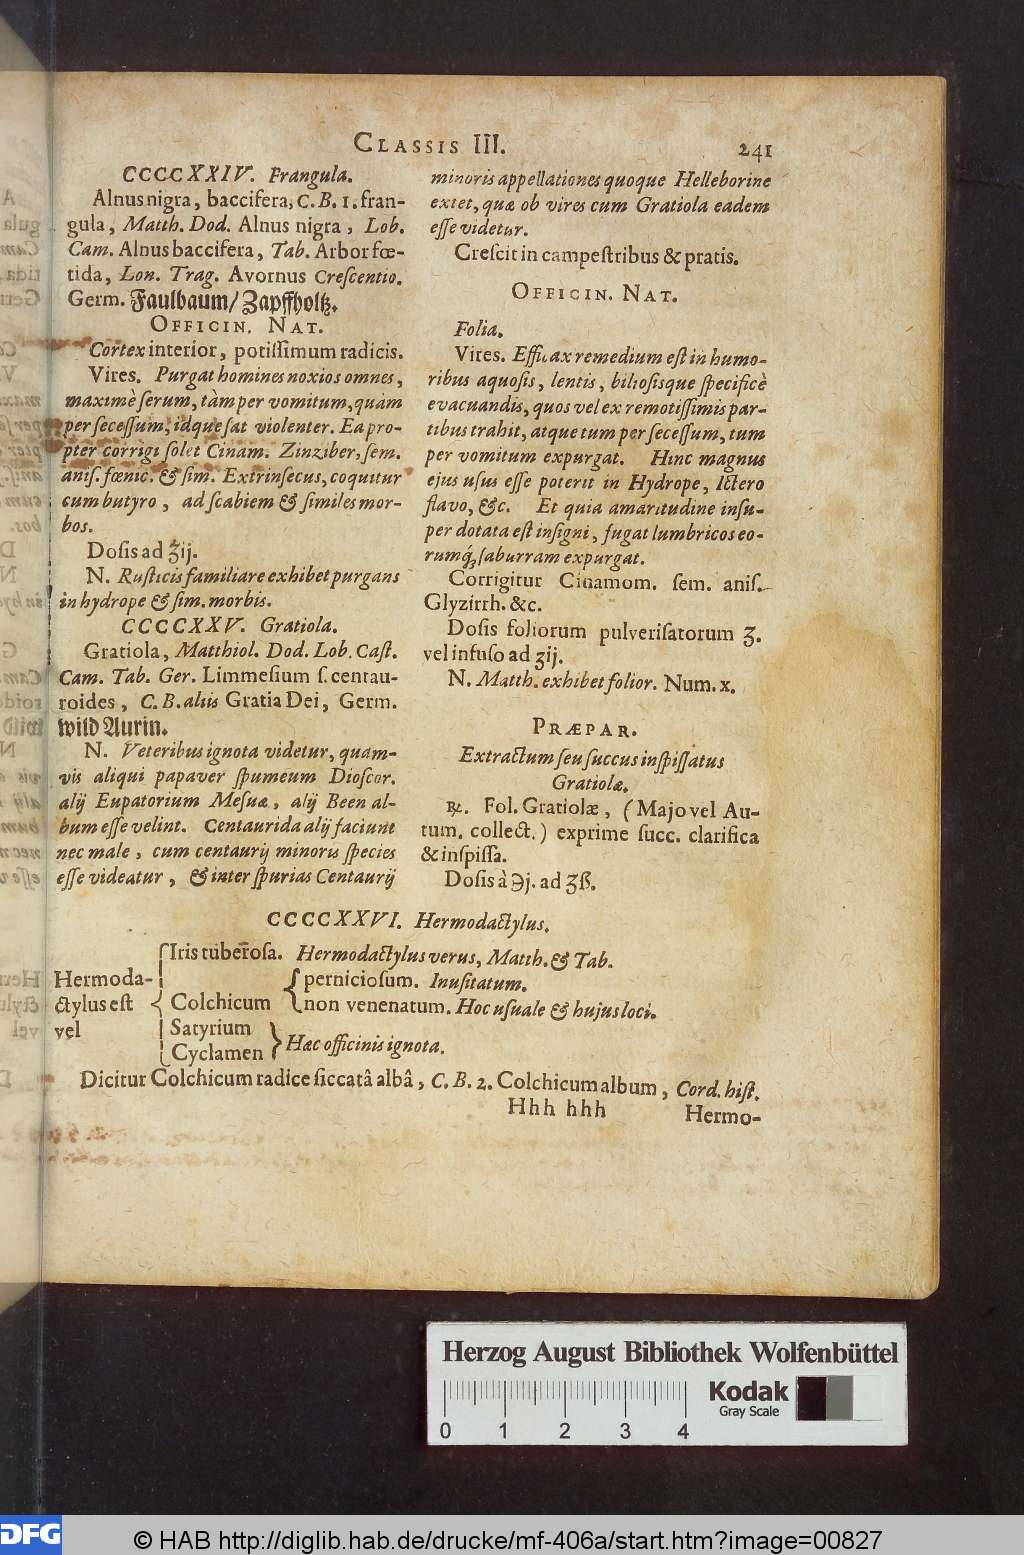 CLASSIS III.
241
CCCCXXIV. Frangula.
Alnus nigra, baccifera, C. B. 1. fran-
gula, Matth. Dod. Alnus nigra, Lob.
Cam. Alnus baccifera, Tab. Arbor fœ-
tida, Lon. Trag. Avornus Crescentio.
Germ. Faulbaum/ Zapffholtz.
OFFICIN. NAT.
Cortex interior, potissimum radicis.
Vires. Purgat homines noxios omnes,
maximè serum, tàm per vomitum, quàm
per secessum, idque sat violenter. Ea pro-
pter corrigi solet Cinam. Zinziber, sem.
anis. fœnic. & sim. Extrinsecus, coquitur
cum butyro, ad scabiem & similes mor-
bos.
Dosis ad ʒij.
N. Rusticis familiare exhibet purgans
in hydrope & sim. morbis.
CCCCXXV. Gratiola.
Gratiola, Matthiol. Dod. Lob. Cast.
Cam. Tab. Ger. Limmesium s. centau-
roides, C. B. aliis Gratia Dei, Germ.
wild Aurin.
N. Veteribus ignota videtur, quam-
vis aliqui papaver spumeum Dioscor.
alij Eupatorium Mesuæ, alij Been al-
bum esse velint. Centaurida alij faciunt
nec male, cum centaurij minoris species
esse videatur, & inter spurias Centaurij
minoris appellationes quoque Helleborine
extet, quæ ob vires cum Gratiola eadem
esse videtur.
Crescit in campestribus & pratis.
OFFICIN. NAT.
Folia.
Vires. Efficax remedium est in humo-
ribus aquosis, lentis, biliosisque specificè
evacuandis, quos vel ex remotissimis par-
tibus trahit, atque tum per secessum, tum
per vomitum expurgat. Hinc magnus
ejus usus esse poterit in Hydrope, Ictero
flavo, &c. Et quia amaritudine insu-
per dotata est insigni, fugat lumbricos eo-
rumq́; saburram expurgat.
Corrigitur Cinamom. sem. anis.
Glyzirrh. &c.
Dosis foliorum pulverisatorum ʒ.
vel infuso ad ʒij.
N. Matth. exhibet folior. Num. x.
PRÆPAR.
Extractum seu succus inspissatus
Gratiolæ.
℞. Fol. Gratiolæ, (Majo vel Au-
tum. collect.) exprime succ. clarifica
& inspissa.
Dosis à ℈j. ad ʒß.
CCCCXXVI. Hermodactylus.
Iris tuberosa. Hermodactylus verus, Matth. & Tab.
Hermoda- perniciosum. Inusitatum.
ctylus est Colchicum non venenatum. Hoc usuale & hujus loci.
vel Satyrium
Cyclamen Hæc officinis ignota.
Dicitur Colchicum radice siccatâ albâ, C. B. 2. Colchicum album, Cord. hist.
Hhh hhh Hermo-
Herzog August Bibliothek Wolfenbüttel
Kodak
Gray Scale
0 1 2 3 4
DFG
© HAB http://diglib.hab.de/drucke/mf-406a/start.htm?image=00827